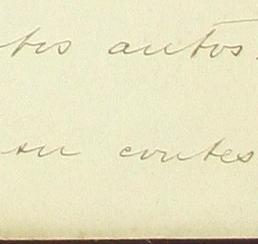 tes autos.
su contes